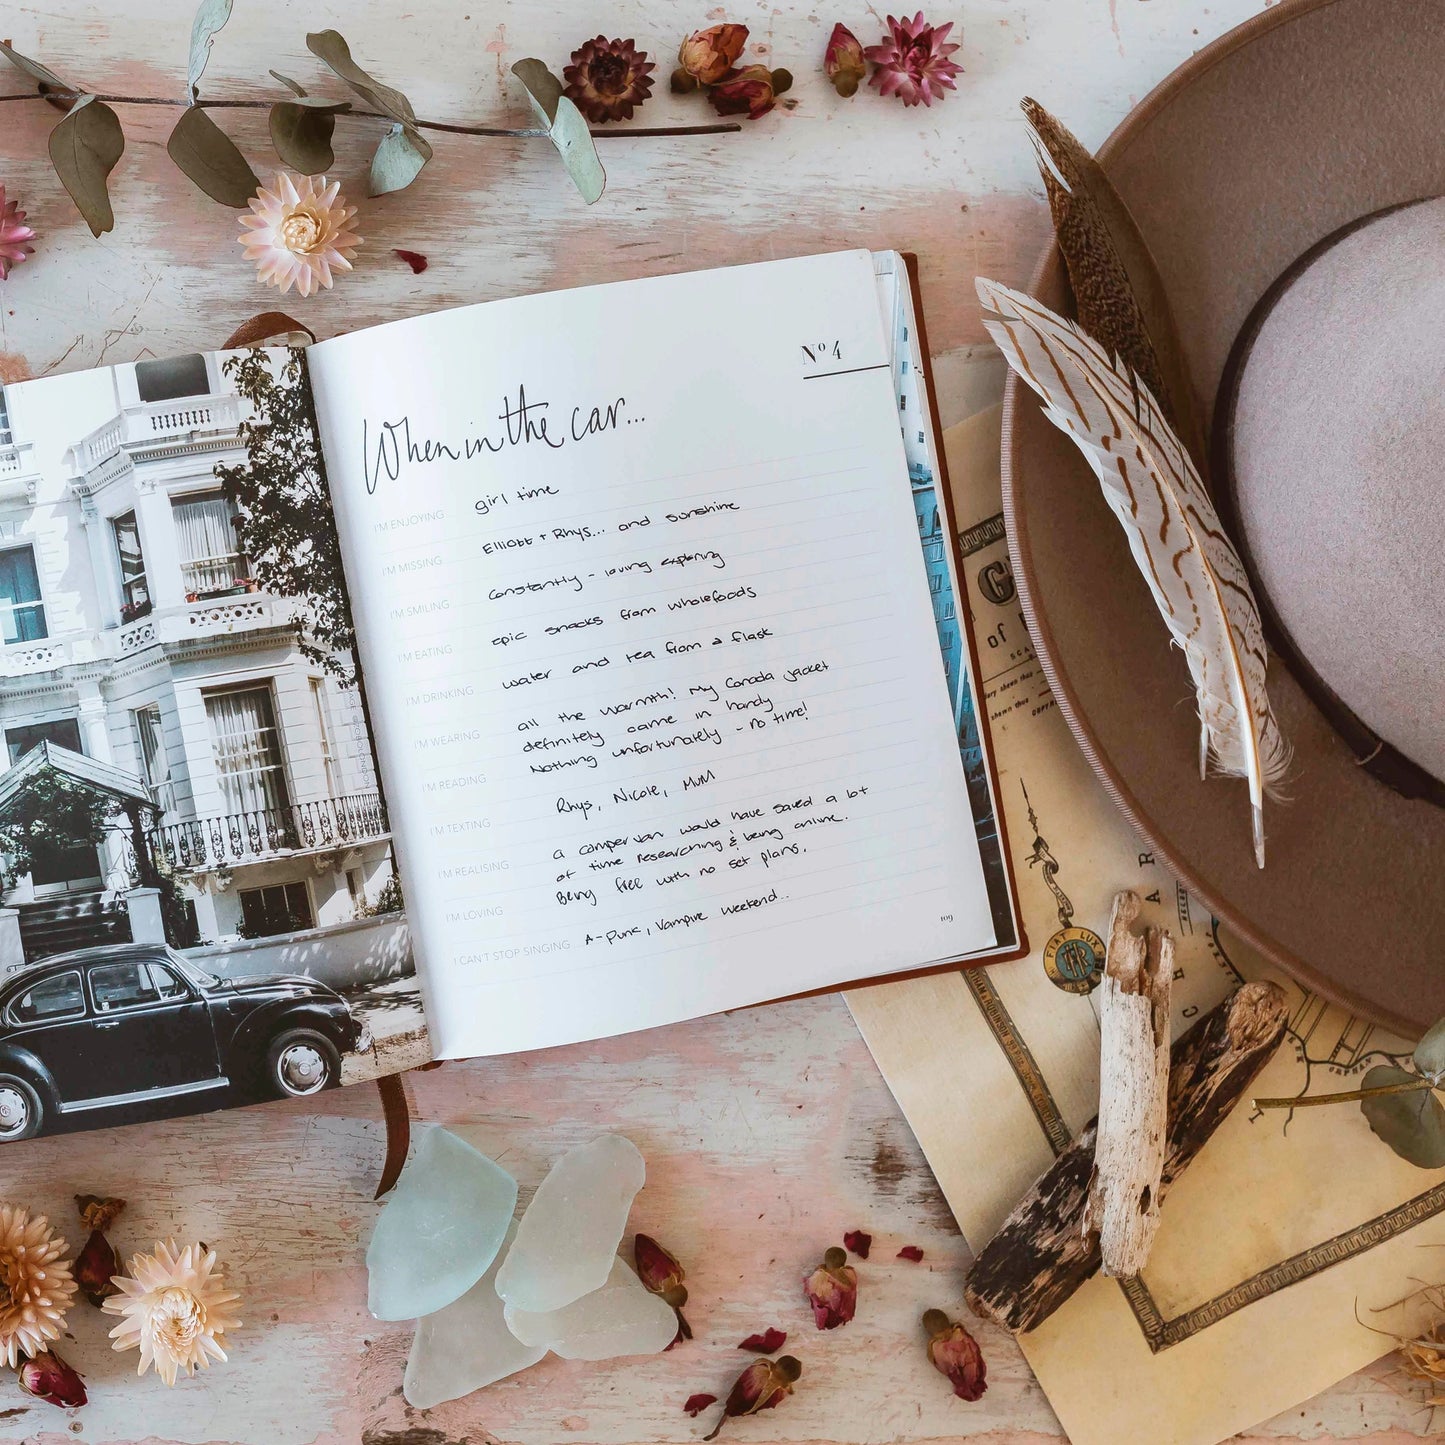 Nº 4
When in the car...
I'M ENJOYING girl time
I'M MISSING Elliott + Rhys... and sunshine
I'M SMILING Constantly - loving exploring
I'M EATING Epic snacks from wholefoods
I'M DRINKING water and tea from a flask
I'M WEARING all the warmth! My Canada jacket
definitely came in handy
I'M READING Nothing unfortunately - no time!
I'M TEXTING Rhys, Nicole, MuM
I'M REALISING a camper van would have saved a lot
of time researching & being online.
I'M LOVING Being free with no set plans.
I CAN'T STOP SINGING A-Punk, Vampire Weekend..
109
of
SCA
shown thus
shown thus
ORPH
FIAT LUX